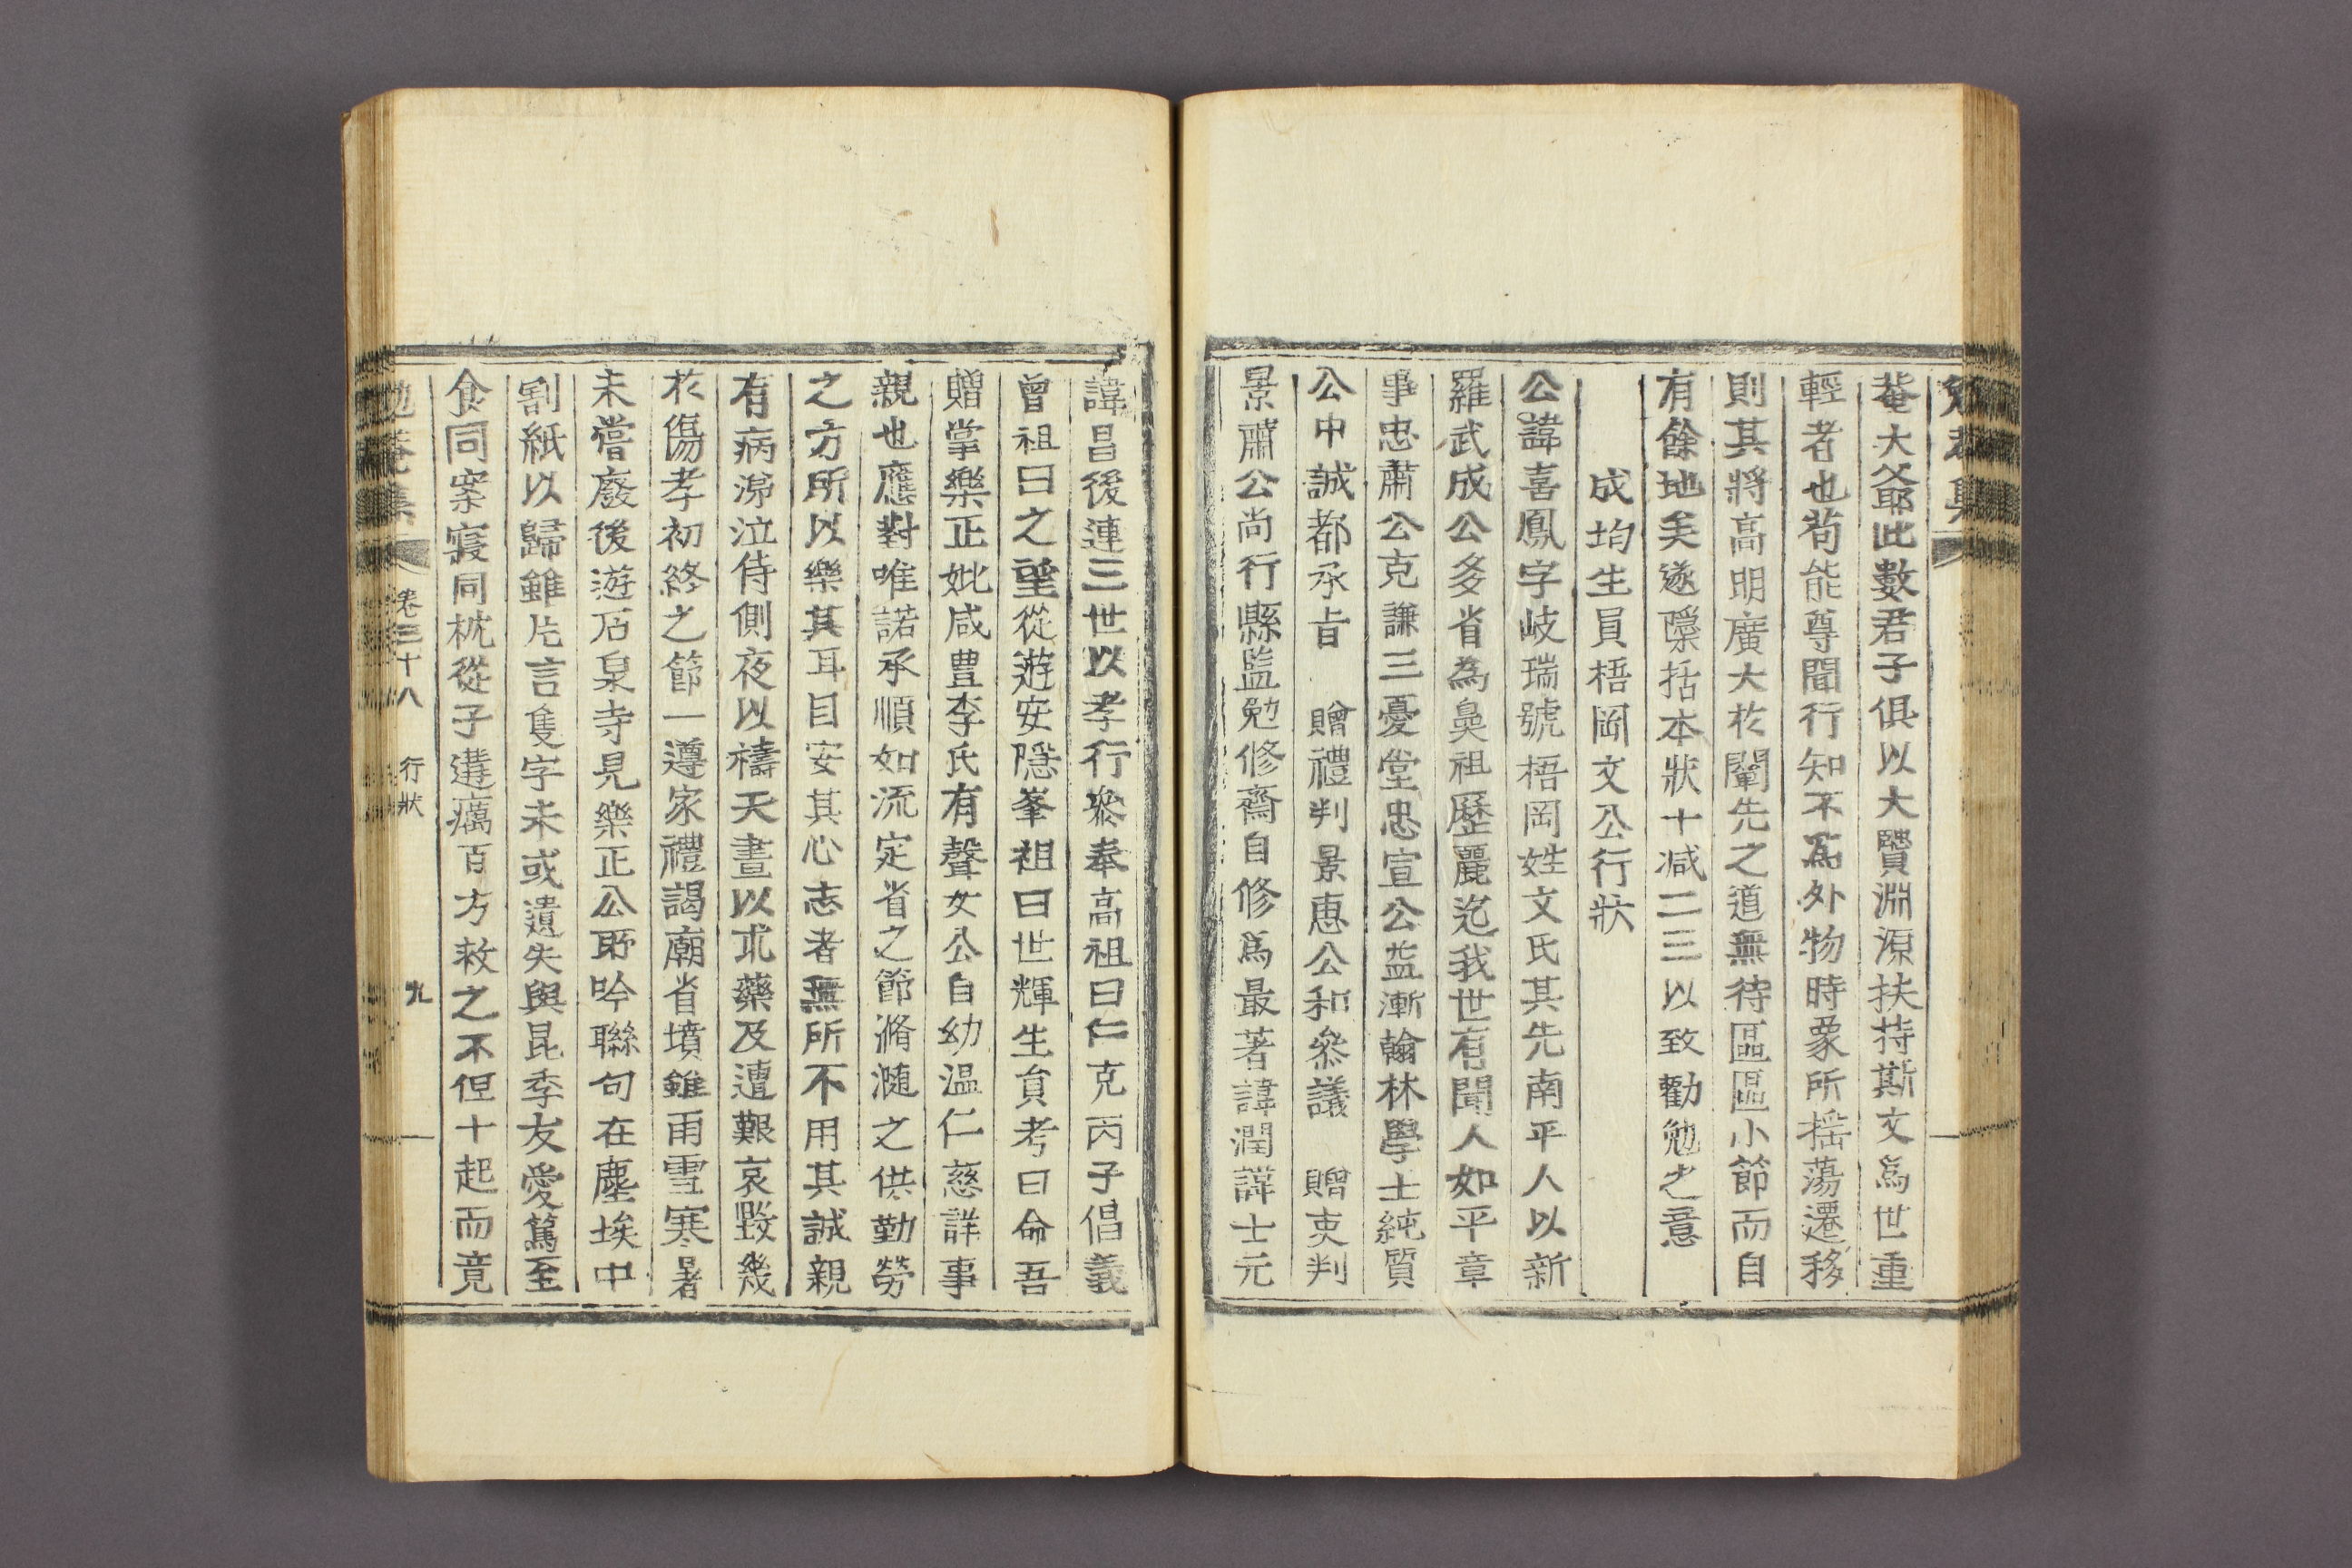 菴大爺此數君子俱以大贒淵源扶持斯文爲世重
輕者也苟能尊聞行知不爲外物時象所搖蕩遷移
則其將高明廣大於闡先之道無待區區小節而自
有餘地矣遂檃括本狀十减二三以致勸勉之意
成均生員梧岡文公行狀
公諱喜鳳字岐瑞號梧岡姓文氏其先南平人以新
羅武成公多省為鼻祖歷麗迄我世有聞人如平章
事忠肅公克謙三憂堂忠宣公益漸翰林學士純質
公中誠都承旨 贈禮判景惠公和叅議 贈吏判
景肅公尚行縣監勉修齋自修爲最著諱潤諱士元
諱昌後連三世以孝行叅奉高祖曰仁克丙子倡義
曾祖曰之望從遊安隱峯祖曰世輝生貟考曰命吾
贈掌樂正妣咸豊李氏有聲女公自幼温仁慈詳事
親也應對唯諾承順如流定省之節滫瀡之供勤勞
之方所以樂其耳目安其心志者無所不用其誠親
有病涕泣侍側夜以禱天晝以求藥及遭艱哀毀幾
於傷孝初終之節一遵家禮謁廟省墳雖雨雪寒暑
未嘗廢後遊石泉寺見樂正公所吟聯句在塵埃中
割紙以歸雖片言隻字未或遺失與昆季友愛篤至
食同案寢同枕從子遘癘百方救之不但十起而竟
勉菴集 卷三十八 行狀 九